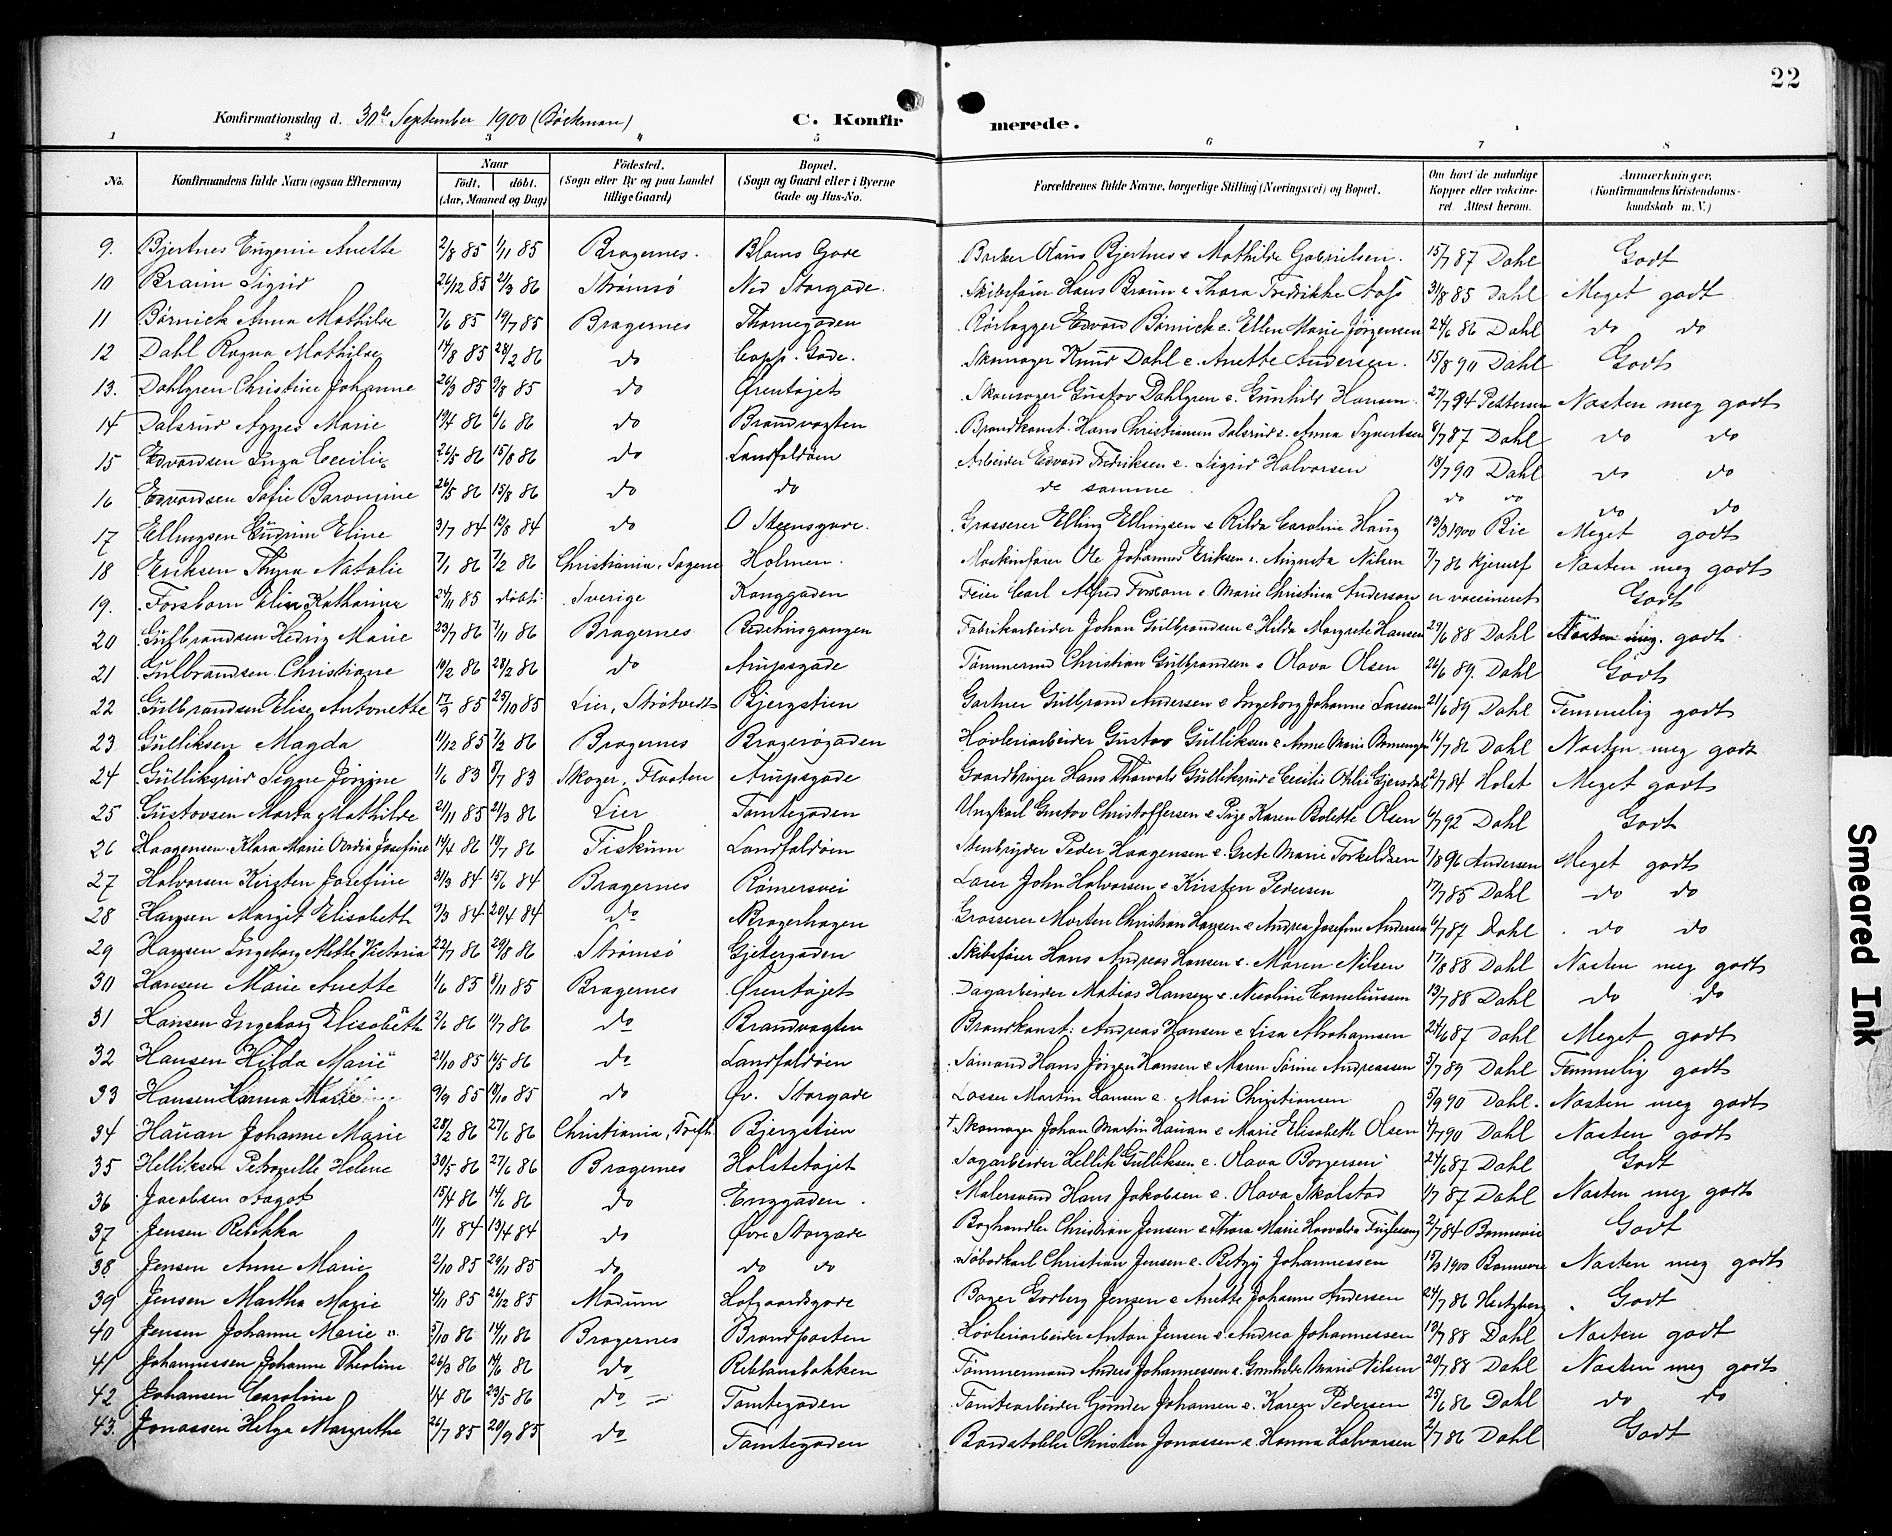 22
Konfirmationsdag d. 30te September 1900 (Böckman) C. Konfirmerede.
1 2 3 4 5 6 7 8
No. Konfirmandens fulde Navn (ogsaa Efternavn) Naar födt. döbt. (Aar, Maaned og Dag) Födested. (Sogn eller By og paa Landet tillige Gaard) Bopæl. (Sogn og Gaard eller i Byerne Gade og Hus-No.) Forældrenes fulde Navne, borgerlige Stilling (Næringsvei) og Bopæl. Om havt de naturlige Kopper eller vakcineret. Attest herom. Anmærkninger. (Konfirmandens Kristendomskundskab m. V.)
9. Bjertnes Eugenie Anette 2/8 85 1/11 85 Bragernes. Blams Gade Barber Olaus Bjertnes & Mathilde Gabrielsen. 15/7 87 Dahl Godt
10 Braun Sigrid 26/12 85 21/3 86 Strømsø Ned Storgade. Skibsfører Hans Braun & Thora Fredrikke 31/8 85 Dahl Meget godt
11 Börnick Anna Mathilde 7/6 85 19/7 85 Bragernes Thornegaden Rørlægger Edvard Börnick & Ellen Marie Jørgensen 24/6 86 Dahl do do
12 Dahl Ragna Mathilde 14/8 85 28/2 86 do Copp. Gade. Skomager Knud Dahl & Anette Andersen. 15/8 90 Dahl Godt
13. Dahlgren Christine Johanne 26/3 85 9/8 85 do Ørentøjet Skomager Gustav Dahlgren & Gunhild Hansen. 27/7 94 Pettersen Næsten meg godt
14 Dalsrud Agnes Marie 19/4 86 6/6 86 do Brandvagten Brandkonst. Hans Christiansen Dalsrud & Anna Syvertsen 8/7 87 Dahl do do
15 Edvardsen Inga Cecilie 26/5 86 15/8 86 do Landfaldøen Arbeider Edvard Fredriksen & Sigrid Halvorsen 18/7 90 Dahl do do
16 Edvardsen Sofie Baromine 26/5 86 15/8 86 do do de samme do do do do
17 Ellingsen Gudrun Eline 3/7 84 12/8 84 do O Steensgade. Grosserer Elling Ellingsen & Rilda Caroline Haug 13/3 1900 Bie Meget godt
18 Eriksen Thyra Natalie 7/1 86 7/2 86 Christiania, Sagene Holmen. Maskinfører Ole Johannes Eriksen & Augusta Nilsen 7/7 86 Kjerulf Næsten meg godt
19. Forsbom Elin Katharina 24/11 85 døbt Sverige Konggaden Feier Carl Alfred Forsbom & Marie Christina Anderson er vaccineret Godt
20 Gulbrandsen Hedvig Marie 23/7 86 7/11 86 Bragernes Bedehusgangen Fabrikarbeider Johan Gulbrandsen & Hilda Margrete Hansen 29/6 88 Dahl Næsten meg. godt
21 Gulbrandsen Christiane 10/2 86 28/2 86 do Arupsgade Tømmermd Christian Gulbrandsen & Olava Olsen 26/6 89. Dahl Godt
22 Gulbrandsen Elise Antonette 17/9 85 25/10 85 Lier, Strøtvedt Bjergstien Gartner Gulbrand Andersen & Ingeborg Johanne Larsen 21/6 89 Dahl Temmelig godt
23 Gulliksen Magda 11/12 85 7/2 86 Bragernes Bragerøgaden Høvleriarbeider Gustav Gulliksen & Anne Marie 16/7 86 Dahl Næsten meg godt
24 Gulliksrud Signe Jörgine 1/6 83 8/7 83 Skoger, Flaaten Arupsgade Gaardbruger Hans Thorvald Gulliksrud & Cecilie Othlie 2/7 84 Holst Meget godt
25 Gustavsen Marta Mathilde 21/11 85 21/3 86 Lier Tomtegaden Ungkarl Gustav Christoffersen & Pige Karen Bolette Olsen 6/7 92 Dahl Godt
26 Haagensen Klara Marie Ovedia Josefine 14/4 86 18/7 86 Fiskum Landfaldøen Stenbryder Peder Haagensen & Grete Marie Torkeldsen 7/8 96 Andersen Meget godt
27 Halvorsen Kirsten Josefine 31/3 84 15/6 84 Bragernes Rømersvei Lærer John Halvorsen & Kirsten Pedersen 17/7 85 Dahl do do
28 Hansen Margit Elisabeth 9/3 84 20/4 84 do Bragerhagen Grosserer Morten Christian Hansen & Andrea Josefine Andersen 6/7 87 Dahl do do
29 Hansen Ingeborg Mette Victoria 22/7 86 29/8 86 Strømsø Gjetergaden Skibsfører Hans Andreas Hansen & Maren Nilsen 17/8 88 Dahl Næsten meg godt
30 Hansen Marie Anette 1/6 85 8/11 85 Bragernes Ørentøjet Dagarbeider Matias Hansen & Nicoline Corneliussen 13/7 88 Dahl do do
31 Hansen Ingeborg Elisabeth 2/6 86 11/7 86 do Brandvagten Brandkonst. Andreas Hansen & Lisa Abrahamsen 24/6 87 Dahl Meget godt
32 Hansen Hilda Marie 21/10 85 16/5 86 do Landfaldøen Sømand Hans Jörgen Hansen & Maren Sørine Andreassen 5/7 89 Dahl Temmelig godt
33 Hansen Hanna Marie 9/9 85 18/10 85 do Øv. Storgade Losser Martin Hansen & Mari Christiansen 5/9 90 Dahl. Næsten meg godt
34 Hauan Johanne Marie 28/2 86 27/6 86 Christiania, Trefh. Bjergstien † Skomager Johan Martin Hauan & Marie Elisabeth Olsen 4/7 90 Dahl Næsten godt
35 Helliksen Petronelle Helene 30/5 86 27/6 86 Bragernes Holstetøjet Sagarbeider Hellik Gulliksen & Olava Borgersen 24/6 87 Dahl Godt
36 Jacobsen Aagot 15/4 86 14/6 86 do Enggaden. Malersvend Hans Jakobsen & Olava Skolstad 1/7 87 Dahl Næsten meg godt
37 Jensen Rebekka 11/1 84 13/4 84 do Øvre Storgade Boghandler Christian Jensen & Thora Marie 2/7 84 Bonnevie Godt
38 Jensen Anne Marie 2/10 85 29/11 85 do do do Søbadkarl Christian Jensen & Betzy Johannessen 15/3 1900 Bonnevie Næsten meg godt
39 Jensen Martha Marie 4/11 85 26/12 85 Modum Hofgaardsgade Bager Gorberg Jensen & Anette Johanne Andersen 24/7 86 Hertzberg Godt
40 Jensen Johanne Marie 5/10 86 14/11 86 Bragernes Brandposten Høvleriarbeider Anton Jensen & Andrea Johannessen 13/7 88 Dahl Næsten godt
41 Johannessen Johanne Theoline 26/3 86 14/6 86 do Rebbansbakken Tømmermand Anders Johannessen & Gunhilde Marie Nilsen 20/7 88 Dahl Næsten meg godt
42 Johansen Caroline 1/4 86 23/5 86 do Tomtegaden Tomtearbeider Gunder Johansen & Karen Pedersen 25/6 86 Dahl do do
43. Jonassen Helga Margrethe 26/7 85 20/9 85 do Tomtegaden Bordstabler Christen Jonassen & Hanna Halvorsen 2/7 86 Dahl Godt
Smeared Ink